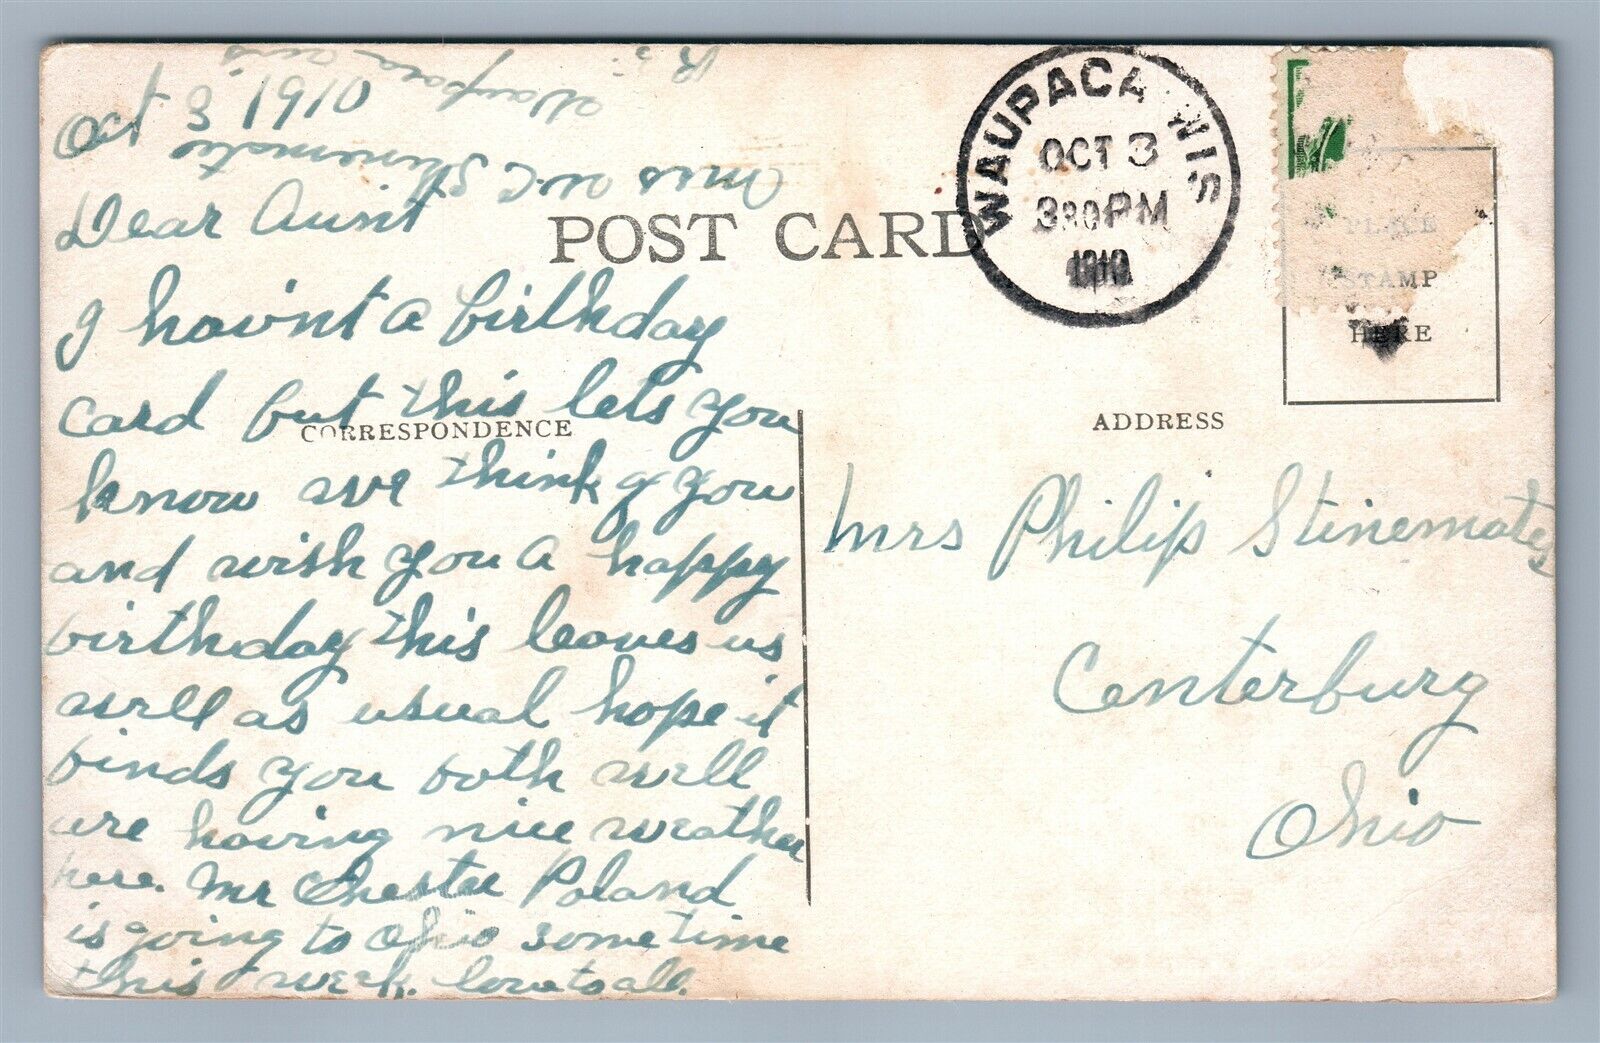 Oct 3 1910
Dear Aunt
I havint a birthday
card but this lets you
know we think of you
and wish you a happy
birthday this leaves us
well as usual hope it
finds you both well
are having nice weather
here. Mr Chester Poland
is going to Ohio some time
this week. love to all.
Mrs W.C. Stinemates
Waupaca Wis
R 5.
POST CARD
CORRESPONDENCE
WAUPACA WIS
OCT 3
330 PM
1910
PLACE
STAMP
HERE
ADDRESS
Mrs Philip Stinemates
Centerburg
Ohio